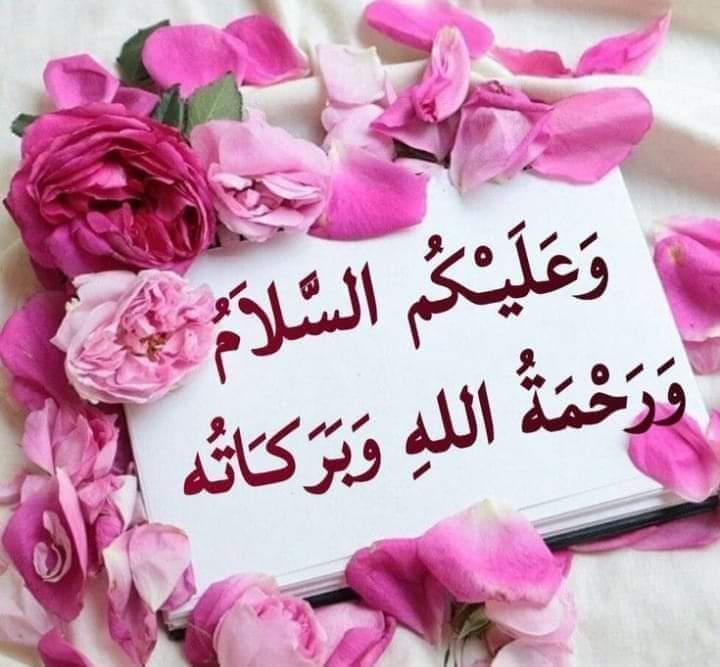 وَعَلَيْكُم السَّلاَمُ
وَرَحْمَةُ اللهِ وَبَرَكَاتُه